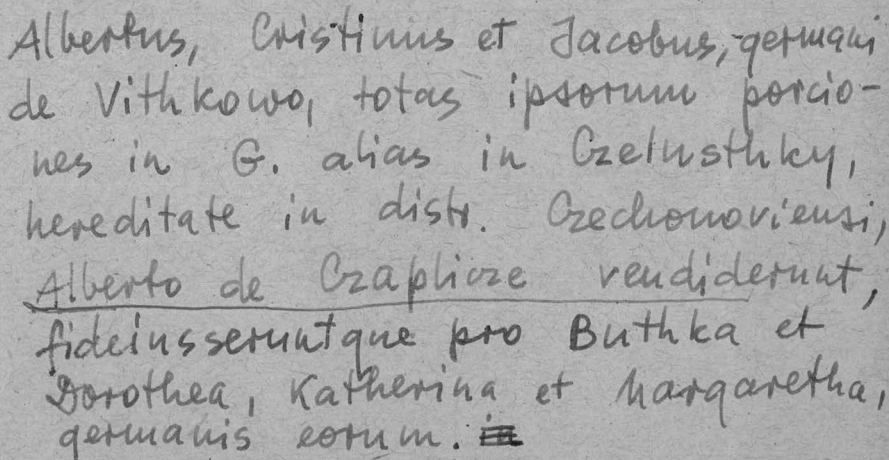 Albertus, Cristinus et Jacobus, germani
de Vithkowo, totas ipsorum porcio-
nes in G. alias in Czelusthky,
hereditate in distr. Czechonoviensi,
Alberto de Czaplicze vendiderunt,
fideiusseruntque pro Buthka et
Dorothea, Katherina et Margaretha,
germanis eorum.